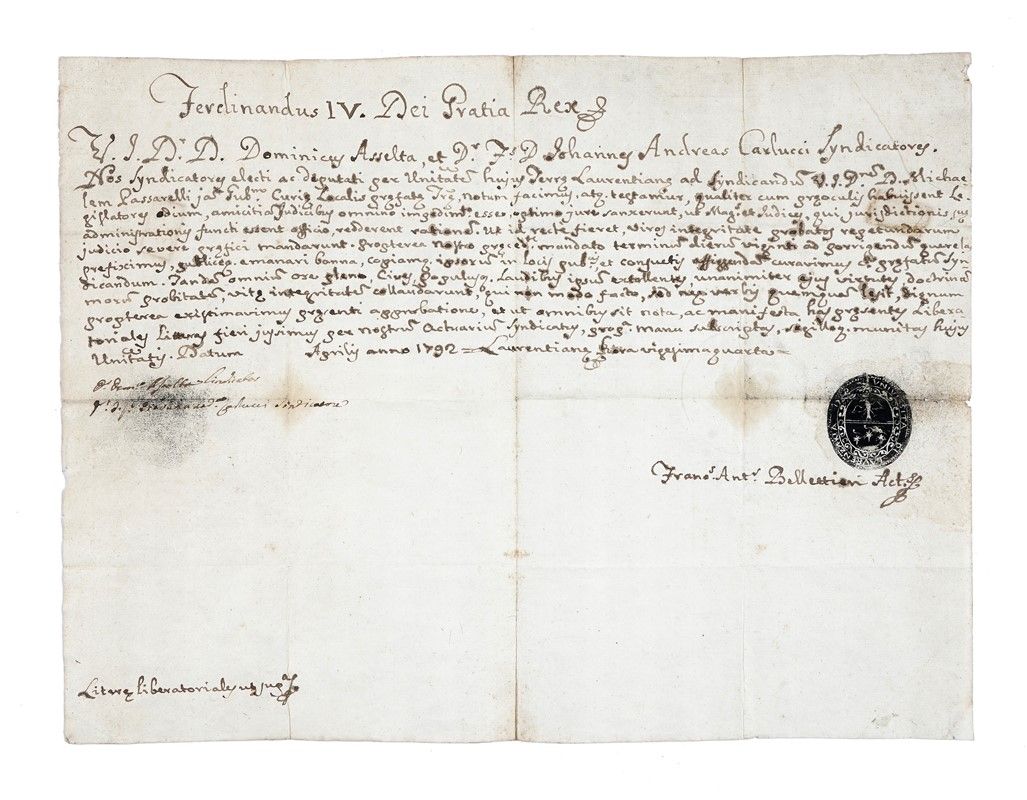 Ferdinandus IV. Dei Gratia Rex
V. J. Dr. D. Dominicus Asselta, et Dr. Fs. D Johannes Andreas Carlucci Syndicatores.
Nos Syndicatores electi ac deputati per Unitatē hujus Terre Laurentiane ad Syndicandū V. J. Dnm D. Michae-
lem Passarelli Curie Localis notum facimus, atq testamur, qualiter cum habuissent Le-
gislatores odium, amicitia Judicibus omnino impedimto esse, optimo jure sanxerunt, ut Mag: et Judices, qui jurisdictionis, sue
administrationis functi essent officio, redderent rationē. Ut id recte fieret, viros integritate probatos regendarum
judicio severe prefici mandarunt. Propterea nostro mandato terminum dierum viginti ad porrigendum querelas
prefiximus, publiceq. emanari banna, copiamq. ipsorum in locis pubcis, et consuetis affigendā curavimus Syn-
dicandum. Tandē omnium ore pleno Cives, Populusq. Laudibus ipsum extollentes unanimiter ejus virtutē, doctrinam
morū probitatē, vite integritatē collaudarunt, qui non modo facto, sed neq verbis quemquem lesit, dignum
propterea existimavimus presenti approbatione, et ut omnibus sit nota, ac manifesta has presentes Libera
toriales Litteras fieri jussimus per nostrum Actuarium Syndicatus, manu subscriptas, munitas hujus
Unitatis. Datum Aprilis anno 1792 = Laurentiane hora vigesimaquarta =
Sindicatore
Carlucci Sindicatore
Franc. Ant. Bellettieri Act.
Litere liberatoriales ut supa